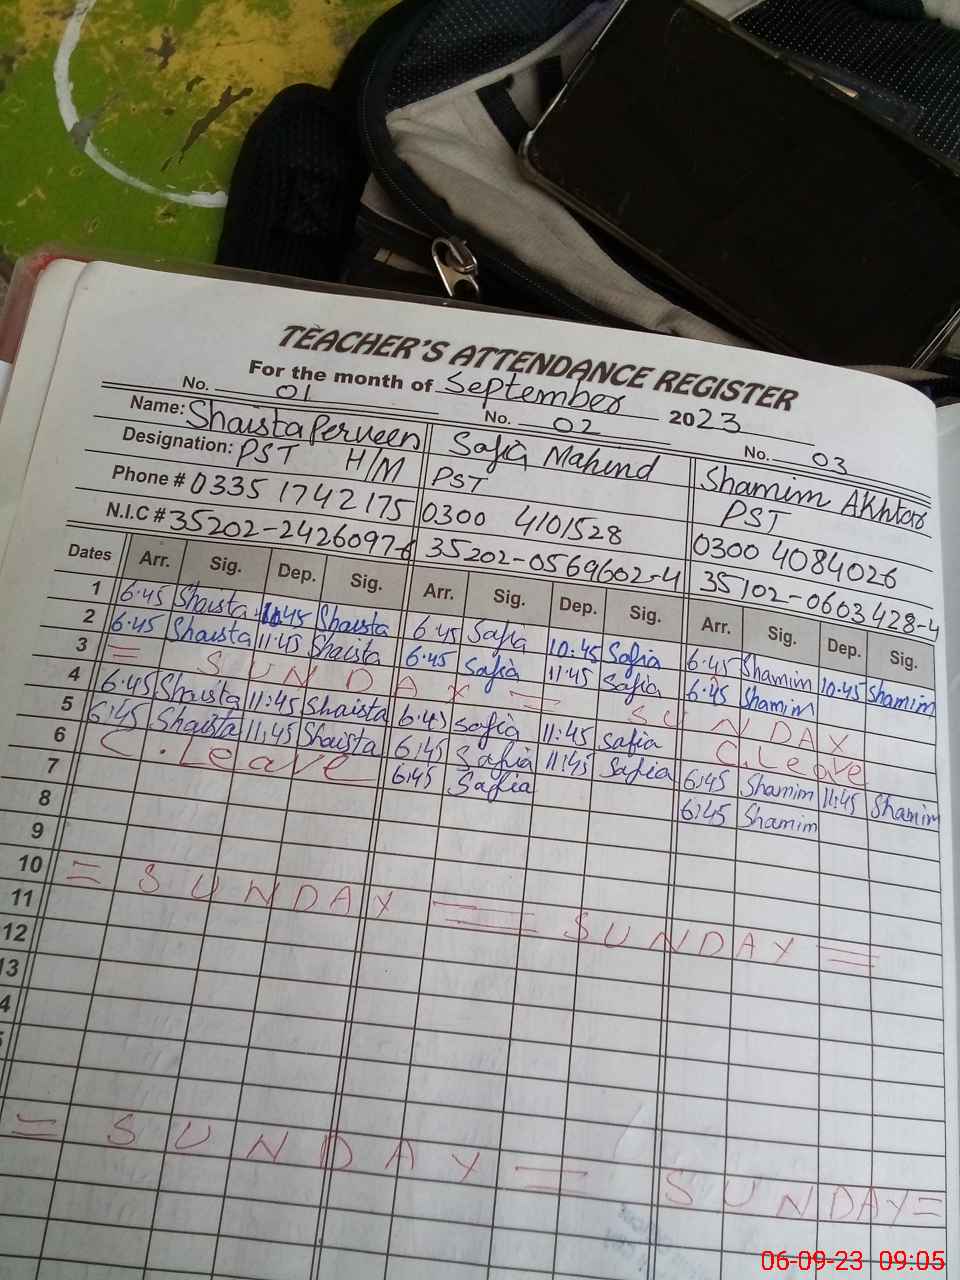 TEACHER'S ATTENDANCE REGISTER
For the month of September 2023
No. 01 No. 02 No. 03
Name: Shaista Perveen Safia Mahmd Shamim AKhtar
Designation: PST H/M PST PST
Phone # 0335 1742175 0300 4101528 0300 4084026
N.I.C # 35202-2426097-6 35202-0569602-4 35102-0603428-4
Dates Arr. Sig. Dep. Sig. Arr. Sig. Dep. Sig. Arr. Sig. Dep. Sig.
1 6.45 Shaista 10.45 Shaista 6.45 Safia 10.45 Safia 6.45 Shamim 10.45 Shamim
2 6.45 Shaista 11.45 Shaista 6.45 Safia 11.45 Safia 6.45 Shamim
3 = SUNDAY = SUNDAY
4 6.45 Shaista 11.45 Shaista 6.45 Safia 11:45 Safia C.Leave
5 6:45 Shaista 11:45 Shaista 6:45 Safia 11:45 Safia 6:45 Shamim 11:45 Shamim
6 C.Leave 6:45 Safia 6:45 Shamim
7
8
9
10 = SUNDAY = = SUNDAY =
11
12
13
4
= SUNDAY = SUNDAY =
06-09-23 09:05